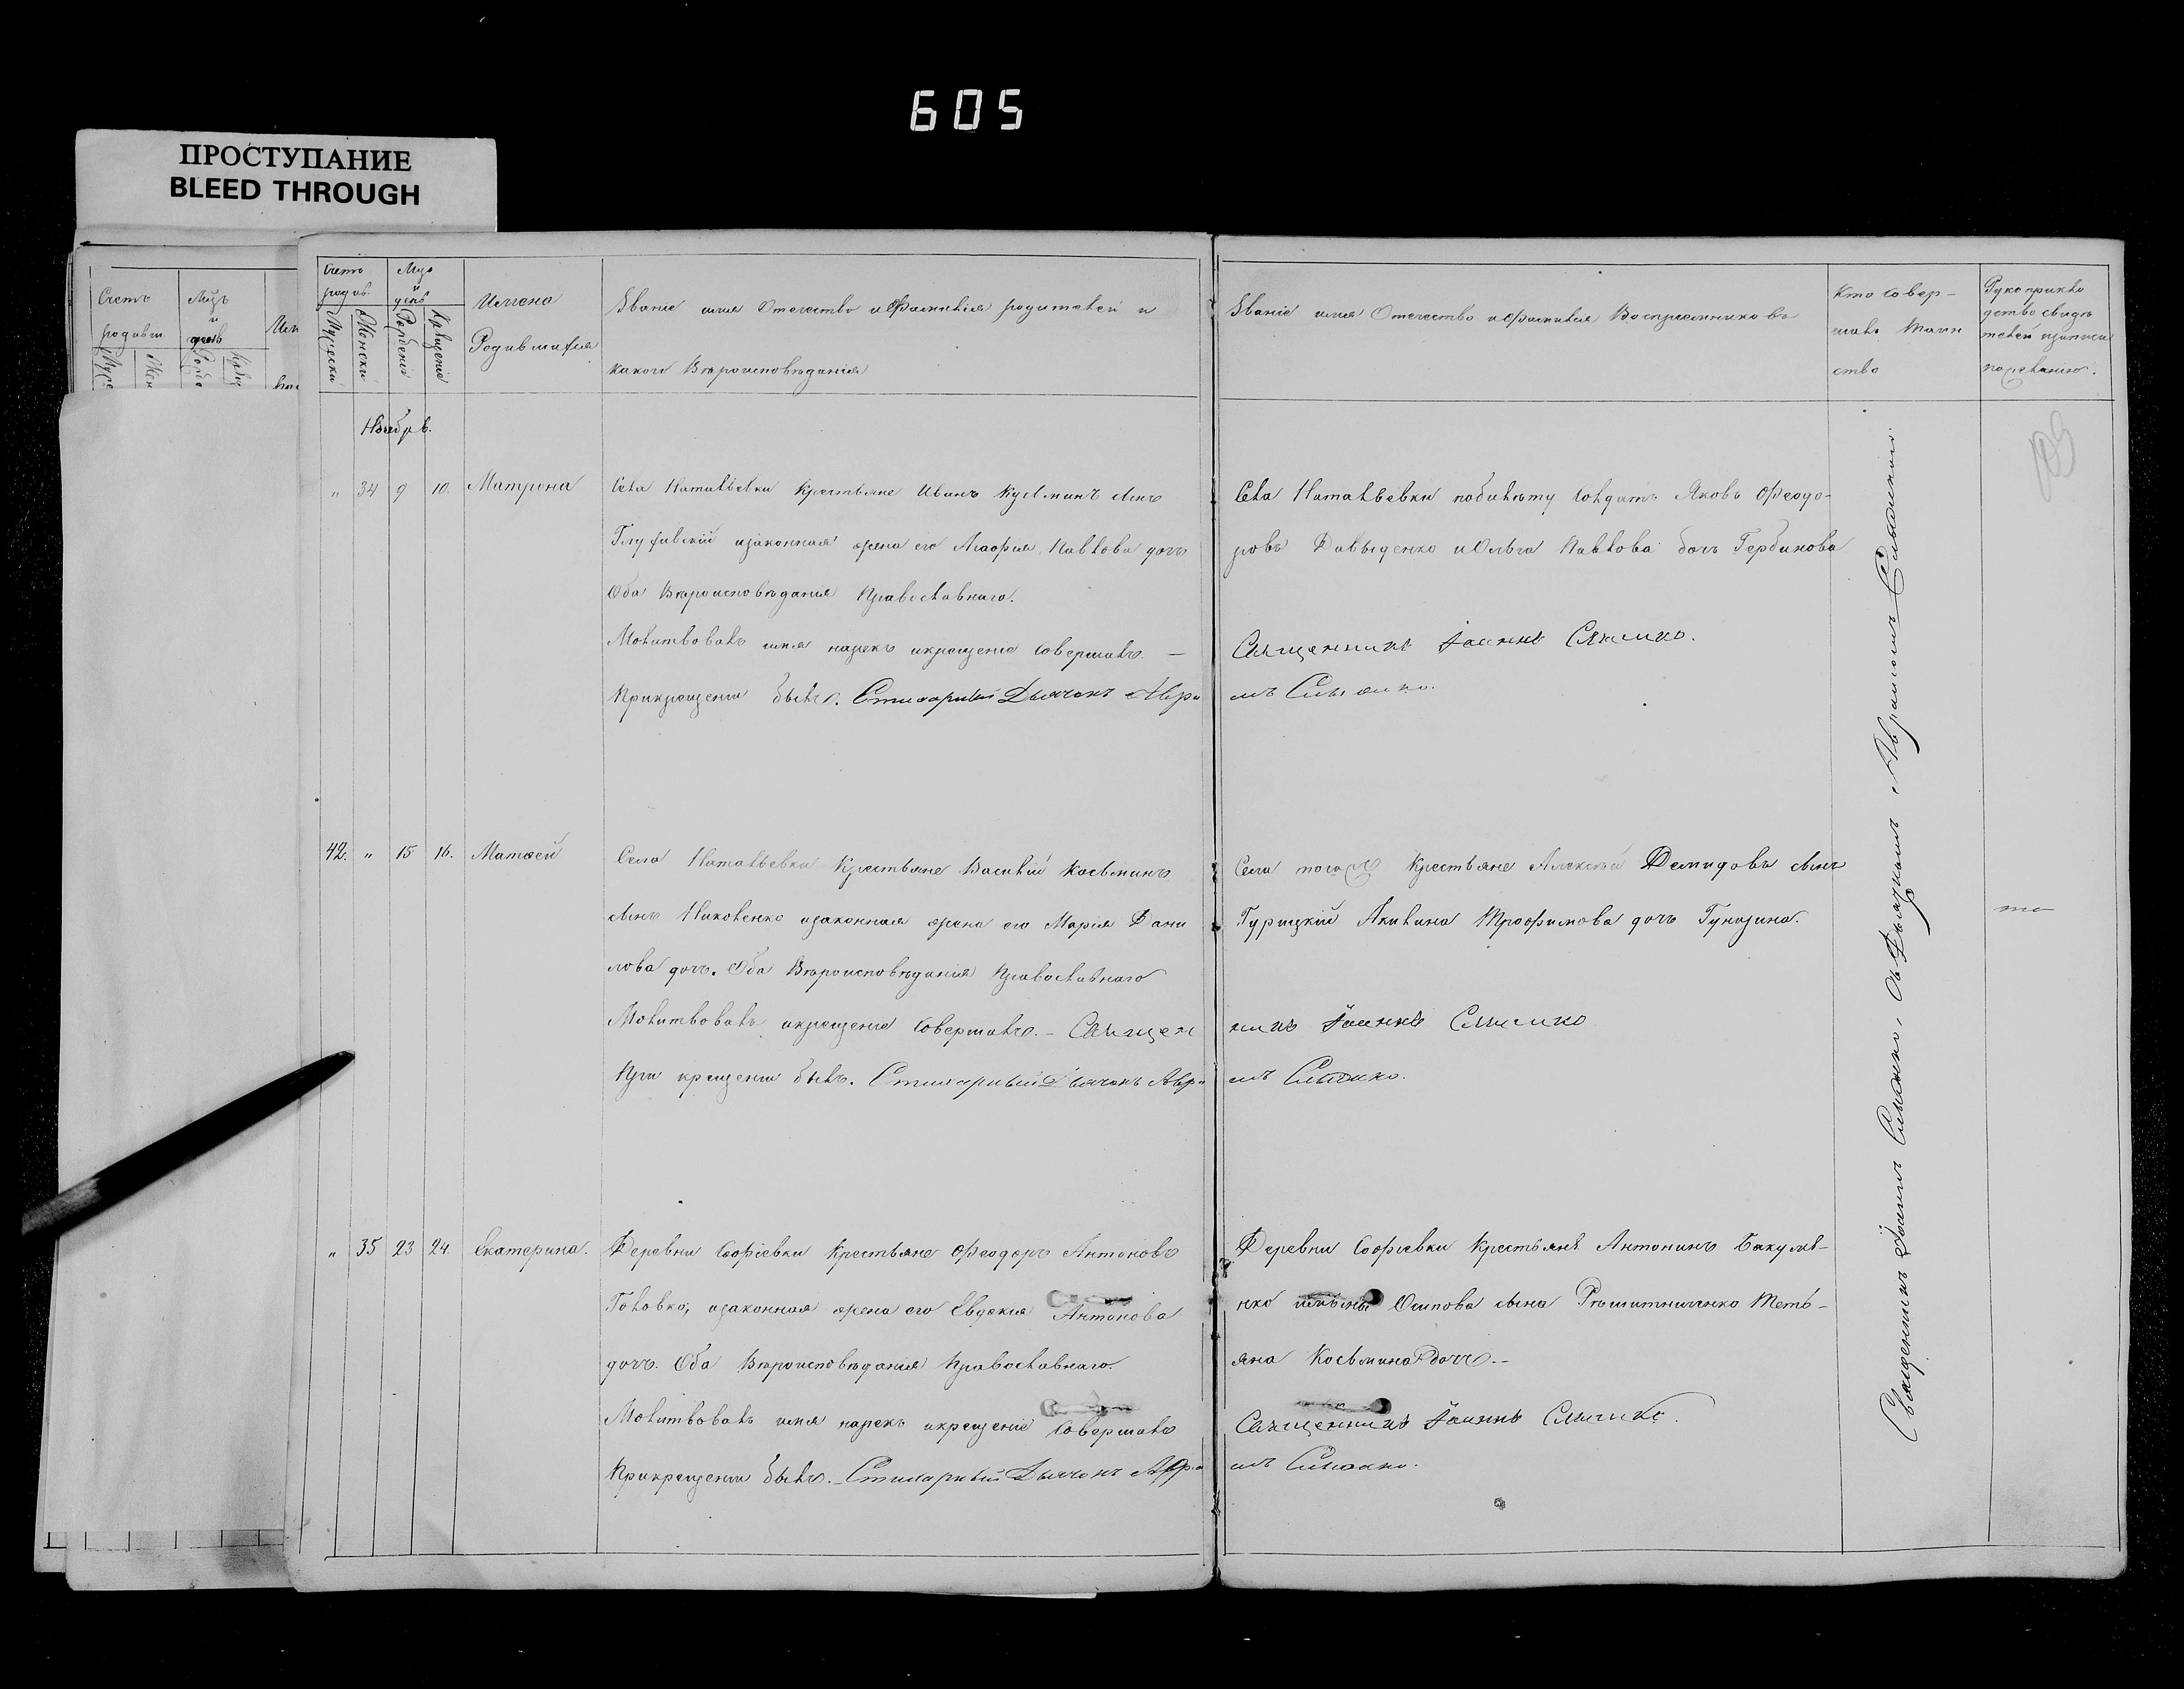 605
ПРОСТУПАНИЕ
BLEED THROUGH
Счетъ
родивш
Мцъ
и
день
Счетъ
родив.
Мужески
Женски
Мцъ
и
день
Рождения
Крещение
Имена
Родившихся
Звание имя Отечество и Фамилия родителей и
какого Вероисповедания
Звание имя Отечество и Фамилия Восприемниковъ
Кто совер-
шалъ Таин
ство
Рукоприкла
дство свиде
телей записи
по желанию.
Ноябрь.
" 34 9 10. Матрона
Села Натальевки Крестьяне Иванъ Кузминъ сынъ
Глуховский и законная жена его Агафия Павлова дочъ
Оба Вероисповедания Православнаго.
Молитвовалъ имя нарекъ и крещение Совершалъ. —
При крещении былъ. Стихарный Дьячокъ Авра
Села Натальевки по билету Солдатъ Яковъ Феодо-
ровъ Давыденко и Ольга Павлова дочъ Гербинова
Священникъ Іоаннъ Слысико.
мъ
42. " 15 16. Матвей
Села Натальевки Крестьяне Василий Косьминъ
сынъ Николенко и законная жена его Мария Дани
лова дочъ. Оба Вероисповедания Православнаго
Молитвовалъ и крещение Совершалъ. – Священ
При крещении былъ. Стихарный Дьячокъ Авра
Села того же Крестьяне Алексей Демидовъ сынъ
Гурицкий Акилина Трофимова дочъ
никъ Іоаннъ
мъ
" 35 23 24 Екатерина.
Деревни Софиевки Крестьяне Феодоръ Антоновъ
Головко, и законная жена его Евдокия Антонова
дочъ. Оба Вероисповедания Православнаго.
Молитвовалъ имя нарекъ и крещение Совершалъ
При крещении былъ. – Стихарный Дьячокъ Авра
Деревни Софиевки Крестьянъ Антонинъ Бакуме-
нко Осипова сына Решитниченко Теть-
яна Косьмина дочъ. –
Священникъ Іоаннъ
мъ
Священникъ Іоаннъ съ Дьячкомъ Аврамомъ